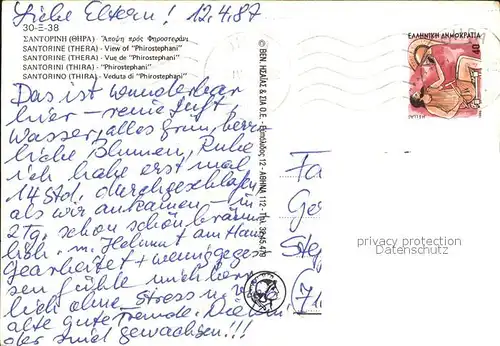 Liebe Eltern! 12.4.87
30-Ξ-38
ΣΑΝΤΟΡΙΝΗ (ΘΗΡΑ) Ἄποψη πρός Φηροστεφάνι
SANTORINE (THERA) - View of "Phirostephani"
SANTORINE (THERA) - Vue de "Phirostephani"
SANTORINI (THIRA) - "Phirostephani"
SANTORINO (THIRA) - Veduta di "Phirostephani"
Das ist wunderbar
hier - reine Luft,
Wasser, alles grün, herr-
liche Blumen, Ruhe
ich habe erst mal
14 Std. durchgeschlafen
als wir ankamen - in
2 Tg. schon schön bräun-
lich. m. Helmut am Haus
Gearbeitet +
sen fühle mich herr-
lich ohne Stress u.
alte gute Freunde. Die
aber sind gewachsen!!!
ΕΛΛΗΝΙΚΗ ΔΗΜΟΚΡΑΤΙΑ
40
HELLAS
ΑΘΗΝΑ 112 - Τηλ.
privacy protection
Datenschutz